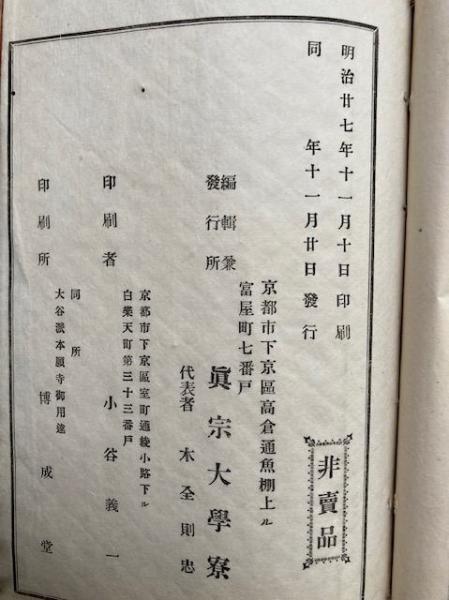 明治廿七年十一月十日印刷
同 年十一月廿日發行
非賣品
編輯兼
發行所
京都市下京區高倉通魚棚上ル
富屋町七番戸
眞宗大學寮
代表者 木全則忠
印刷者
京都市下京區室町通綾小路下ル
白樂天町第三十三番戸
小谷義一
印刷所
同所
大谷派本願寺御用達
博成堂